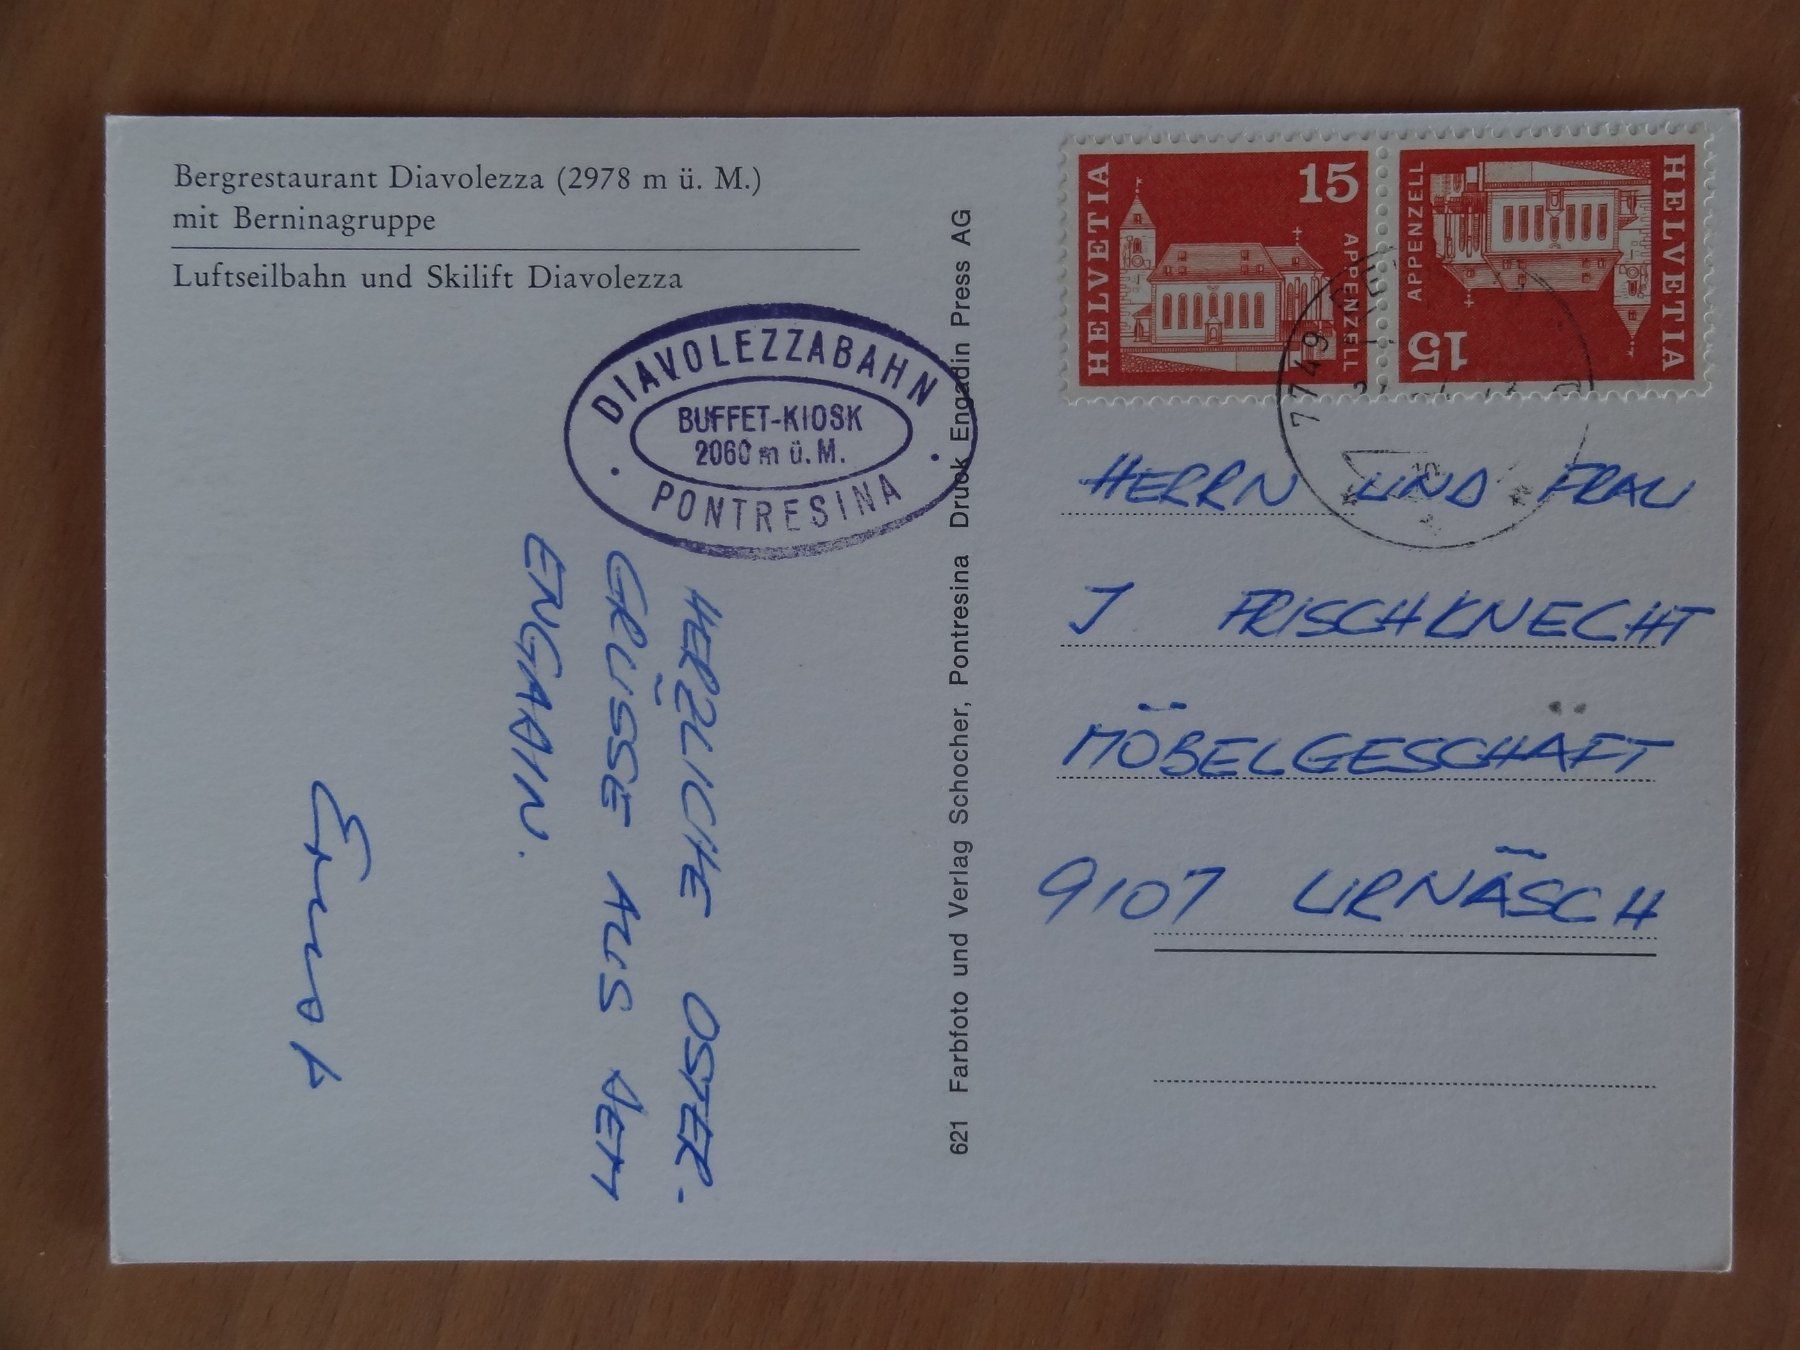 Bergrestaurant Diavolezza (2978 m ü. M.)
mit Berninagruppe
Luftseilbahn und Skilift Diavolezza
DIAVOLEZZABAHN
BUFFET-KIOSK
2060 m ü. M.
PONTRESINA
HERZLICHE OSTER-
GRÜSSE AUS DEM
ENGADIN.
Ernst
621 Farbfoto und Verlag Schocher, Pontresina Druck Engadin Press AG
HELVETIA
15
APPENZELL
HELVETIA
15
APPENZELL
7749
HERRN UND FRAU
J FRISCHKNECHT
MÖBELGESCHÄFT
9107 URNÄSCH